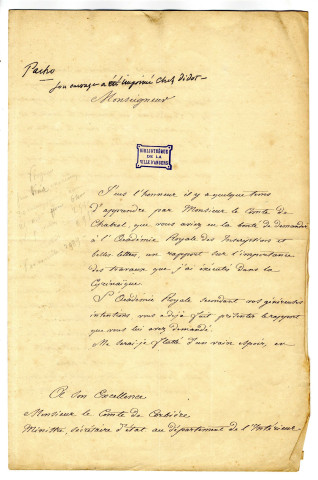 Pacho
son ouvrage a été imprimé chez Didot
Monseigneur
BIBLIOTHÈQUE
DE LA
VILLE D'ANGERS
J'eus l'honneur il y a quelque tems
d'apprendre par Monsieur le Comte de
Chabrol, que vous aviez eu la bonté de demander
à l'Académie Royale des Inscriptions et
belles lettres, un rapport sur l'importance
des travaux que j'ai exécutés dans la
Cyrénaïque.
L'Académie Royale secondant vos généreuses
intentions vous a déjà fait présenter le rapport
que vous lui avez demandé.
Me serai-je flatté d'un vain espoir, en
A Son Excellence
Monsieur le Comte de Corbière
Ministre, secrétaire d'état au département de l'Intérieur